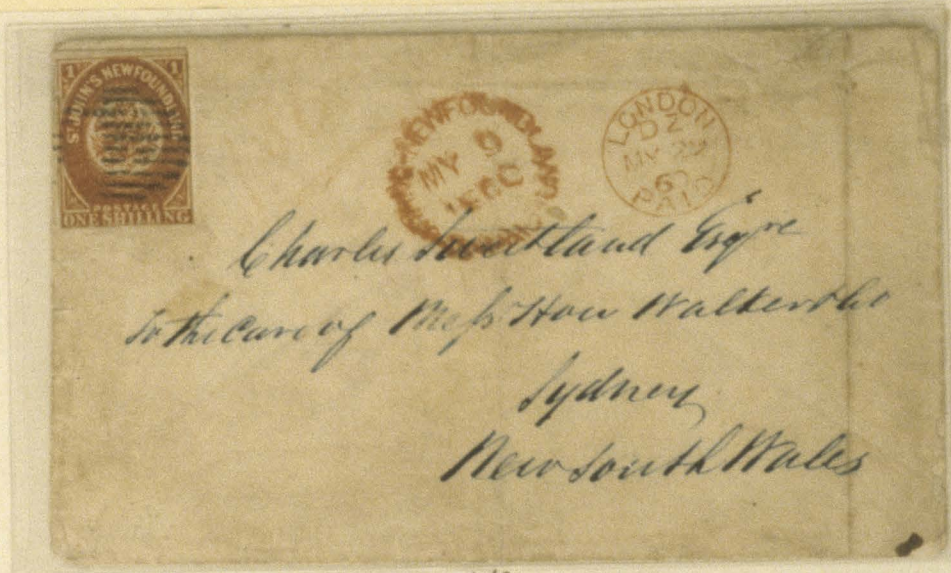 1 1
ST. JOHN'S NEWFOUNDLAND
POSTAGE
ONE SHILLING
NEWFOUNDLAND
MY 9
1860
LONDON
DZ
MY 22
60
PAID
Charles Esqre
To the Care of Messrs How Walker & Co
Sydney
New South Wales